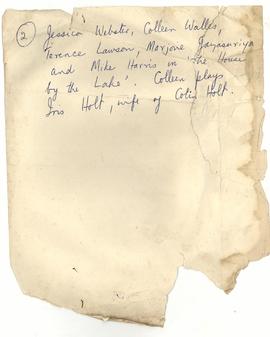 ② Jessica Webster, Colleen Walles,
Terence Lawson, Marjorie Jayasuriya
and Mike Harris in 'The House
by the Lake'. Colleen plays
Iris Holt, wife of Colin Holt.